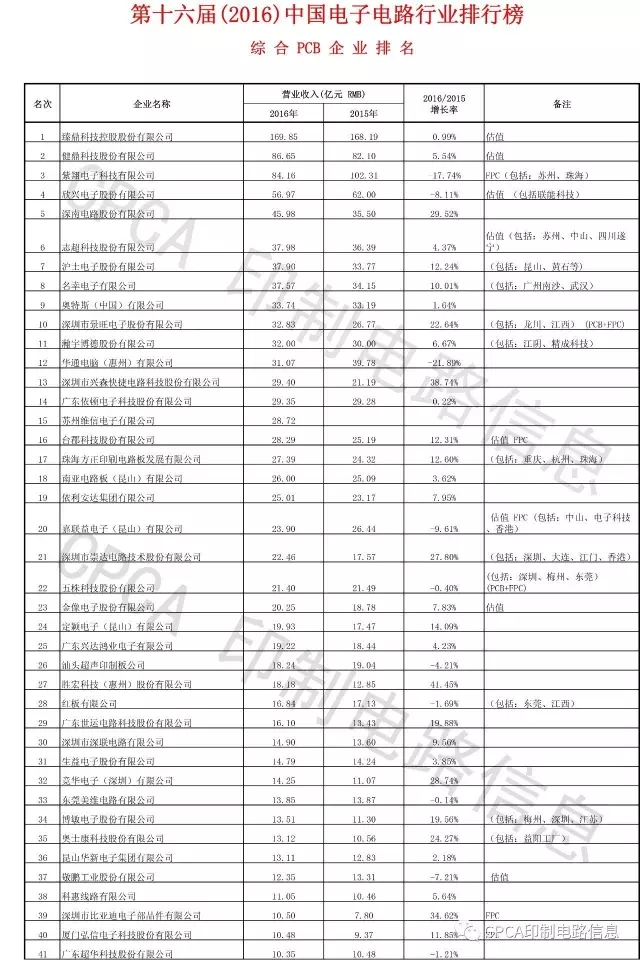 第十六届(2016)中国电子电路行业排行榜
综合PCB企业排名
名次 企业名称 营业收入(亿元 RMB) 2016/2015增长率 备注
2016年 2015年
1 臻鼎科技控股股份有限公司 169.85 168.19 0.99% 估值
2 健鼎科技股份有限公司 86.65 82.10 5.54% 估值
3 紫翔电子科技有限公司 84.16 102.31 -17.74% FPC(包括:苏州、珠海)
4 欣兴电子股份有限公司 56.97 62.00 -8.11% 估值 (包括联能科技)
5 深南电路股份有限公司 45.98 35.50 29.52%
6 志超科技股份有限公司 37.98 36.39 4.37% 估值(包括:苏州、中山、四川遂宁)
7 沪士电子股份有限公司 37.90 33.77 12.24% (包括:昆山、黄石等)
8 名幸电子有限公司 37.57 34.15 10.01% (包括:广州南沙、武汉)
9 奥特斯(中国)有限公司 33.74 33.19 1.64%
10 深圳市景旺电子股份有限公司 32.83 26.77 22.64% (包括:龙川、江西) (PCB+FPC)
11 瀚宇博德股份有限公司 32.00 30.00 6.67% (包括:江阴、精成科技)
12 华通电脑(惠州)有限公司 31.07 39.78 -21.89%
13 深圳市兴森快捷电路科技股份有限公司 29.40 21.19 38.74%
14 广东依顿电子科技股份有限公司 29.35 29.28 0.22%
15 苏州维信电子有限公司 28.72
16 台郡科技股份有限公司 28.29 25.19 12.31% 估值 FPC
17 珠海方正印刷电路板发展有限公司 27.39 24.32 12.60% (包括:重庆、杭州、珠海)
18 南亚电路板(昆山)有限公司 26.00 25.09 3.62%
19 依利安达集团有限公司 25.01 23.17 7.95%
20 嘉联益电子(昆山)有限公司 23.90 26.44 -9.61% 估值 FPC(包括:中山、电子科技、香港)
21 深圳市崇达电路技术股份有限公司 22.46 17.57 27.80% (包括:深圳、大连、江门、香港)
22 五株科技股份有限公司 21.40 21.49 -0.40% (包括:深圳、梅州、东莞)(PCB+FPC)
23 金像电子股份有限公司 20.25 18.78 7.83% 估值
24 定颖电子(昆山)有限公司 19.93 17.47 14.09%
25 广东兴达鸿业电子有限公司 19.22 18.44 4.23%
26 汕头超声印制板公司 18.24 19.04 -4.21%
27 胜宏科技(惠州)股份有限公司 18.18 12.85 41.45%
28 红板有限公司 16.84 17.13 -1.69% (包括:东莞、江西)
29 广东世运电路科技股份有限公司 16.10 13.43 19.88%
30 深圳市深联电路有限公司 14.90 13.60 9.56%
31 生益电子股份有限公司 14.79 14.24 3.85%
32 竞华电子(深圳)有限公司 14.25 11.07 28.74%
33 东莞美维电路有限公司 13.85 13.87 -0.14%
34 博敏电子股份有限公司 13.51 11.30 19.56% (包括:梅州、深圳、江苏)
35 奥士康科技股份有限公司 13.12 10.56 24.27% (包括:益阳工厂)
36 昆山华新电子集团有限公司 13.11 12.83 2.18%
37 敬鹏工业股份有限公司 12.35 13.31 -7.21% 估值
38 科惠线路有限公司 11.05 10.46 5.64%
39 深圳市比亚迪电子部品件有限公司 10.50 7.80 34.62% FPC
40 厦门弘信电子科技股份有限公司 10.48 9.37 11.85%
41 广东超华科技股份有限公司 10.35 10.48 -1.21%
CPCA 印制电路信息
CPCA 印制电路信息
CPCA印制电路信息